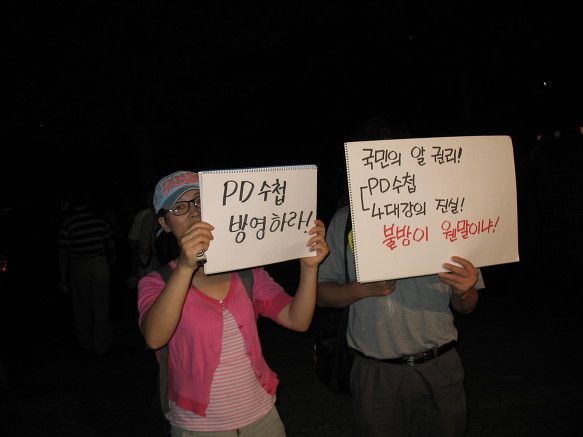 PD수첩
방영하라!
국민의 알 권리!
[PD수첩
4대강의 진실!
불방이 웬말이냐!